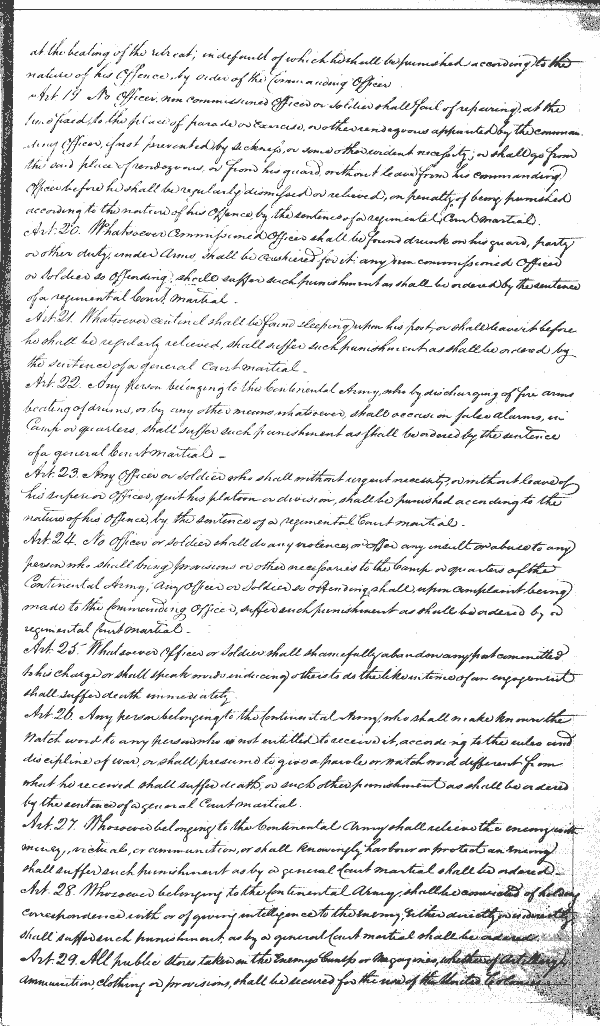 at the beating of the retreat; in default of which he shall be punished according to the
nature of his Offence, by order of the Commanding Officer
Art. 19. No Officer, non commissioned Officer or Soldier shall fail of repairing, at the
time fixed, to the place of parade or exercise, or other rendezvous appointed by the comman-
ding Officer, if not prevented by sickness, or some other evident necessity; or shall go from
the said place of rendezvous, or from his guard, without leave from his commanding
Officer before he shall be regularly dismissed or relieved, on penalty of being punished
according to the nature of his Offence, by the sentence of a regimental Court martial.
Art. 20. Whatsoever Commissioned Officer shall be found drunk on his guard, party
or other duty, under Arms, shall be cashiered for it: any non commissioned Officer
or Soldier so offending, shall suffer such punishment as shall be ordered by the sentence
of a regimental Court martial.
Art. 21. Whatsoever centinel shall be found sleeping upon his post, or shall leave it before
he shall be regularly relieved, shall suffer such punishment as shall be ordered by
the sentence of a general Court martial.
Art. 22. Any Person belonging to the Continental Army, who by discharging of fire arms
beating of drums, or by any other means whatsoever, shall occasion false alarms, in
Camp or quarters, shall suffer such punishment as shall be ordered by the sentence
of a general Court Martial.
Art. 23. Any Officer or Soldier who shall without urgent necessity, or without leave of
his superior Officer, quit his platoon or division, shall be punished according to the
nature of his Offence, by the sentence of a regimental Court martial.
Art. 24. No Officer or soldier shall do any violence, or offer any insult or abuse to any
person who shall bring provisions or other necessaries to the Camp or quarters of the
Continental Army; any Officer or Soldier so offending, shall, upon complaint being
made to the Commanding Officer, suffer such punishment as shall be ordered by a
regimental Court martial.
Art. 25. Whatsoever Officer or Soldier shall shamefully abandon any post committed
to his charge or shall speak words inducing others to do the like in time of an engagement
shall suffer death immediately.
Art. 26. Any person belonging to the Continental Army, who shall make known the
Watch word to any person who is not entitled to receive it, according to the rules and
discipline of war, or shall presume to give a parole or watch word different from
what he received shall suffer death, or such other punishment as shall be ordered
by the sentence of a general Court martial.
Art. 27. Whosoever belonging to the Continental Army shall relieve the enemy with
money, victuals, or ammunition, or shall knowingly harbour or protect an Enemy
shall suffer such punishment as by a general Court martial shall be ordered.
Art. 28. Whosoever belonging to the Continental Army, shall be convicted of holding
correspondence with or of giving intelligence to the enemy, either directly or indirectly
shall suffer such punishment, as by a general Court martial shall be ordered.
Art. 29. All public stores taken in the Enemy's Camp or Magazines, whether of Artillery
ammunition, clothing or provisions, shall be secured for the use of the United Colonies